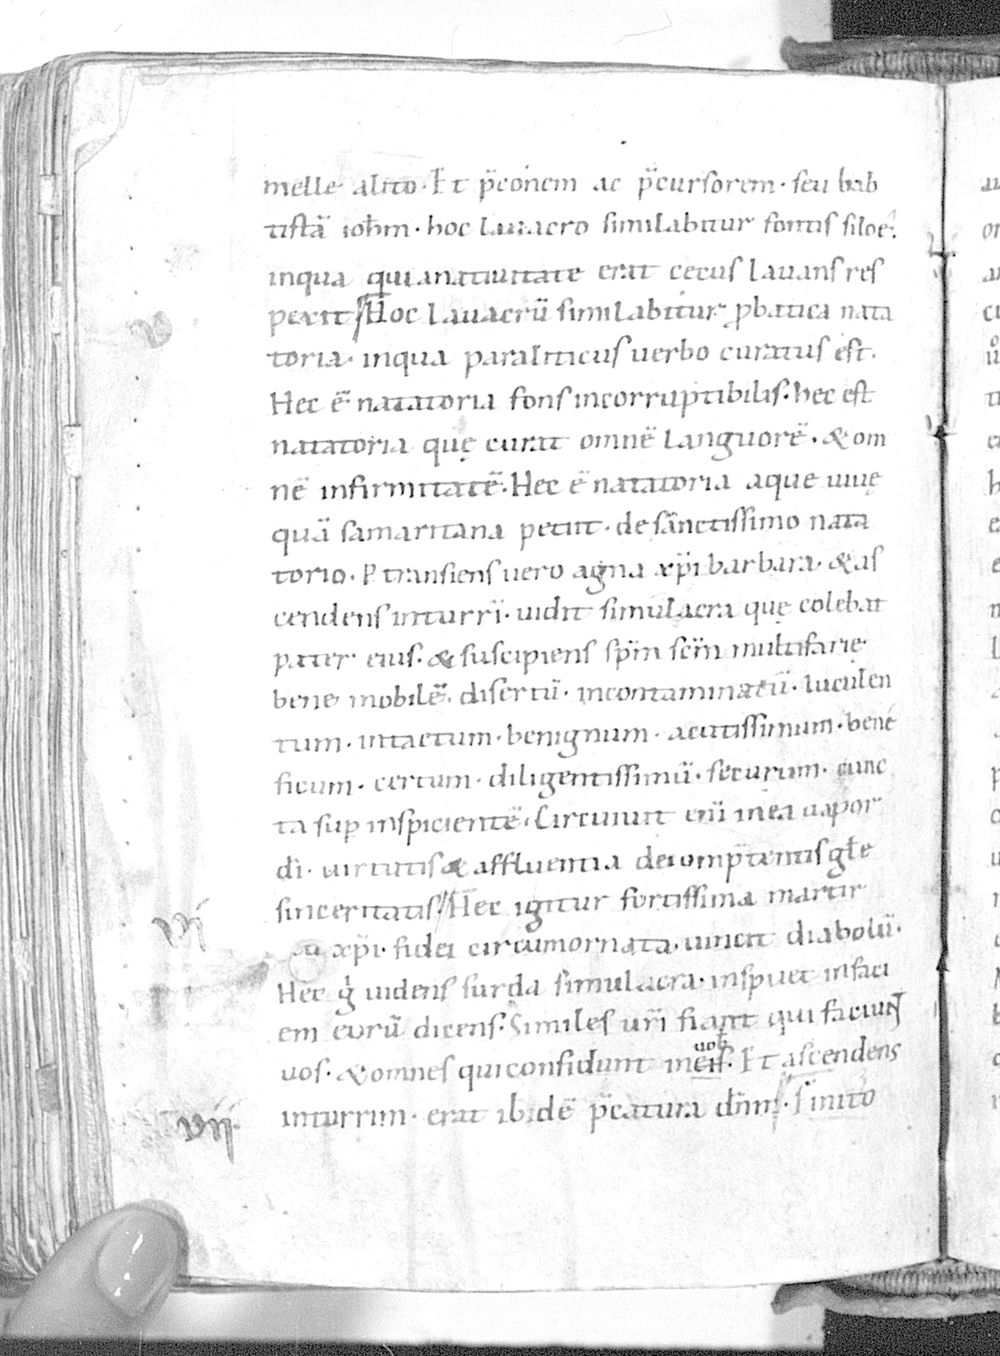 melle alito · Et p̄conem ac p̄cursorem · seu bab
tistā ioh̄m · hoc lauacro similabitur fontis siloe.
inqua qui anatiuitate erat cecus lauans res
pexit Hoc lauacrū similabitur ꝓbatica nata
toria · inqua paraliticus uerbo curatus est.
Hec ē natatoria fons incorruptibilis · hec est
natatoria quę curat omnē languorē · & om
nē infirmitatē · Hec ē natatoria aque uiuę
quā samaritana petiit · de sanctissimo nata
torio · Ptransiens uero agna xp̄i barbara · & as
cendens inturrī · uidit simulacra quę colebat
pater eius · & suscipiens sp̄m sc̄m multifarię
bene mobilē · disertū · incontaminatū · luculen
tum · intactum · benignum · acutissimum · bene
ficum · certum · diligentissimū · securum · cunc
ta suꝑ inspicientē · Circuiuit enī inea uapor
dī · uirtutis & affluentia dei omp̄tentis gl̄e
vi sinceritatis Hec igitur fortissima martir
xp̄i · fidei circumornata · uincit diabolū ·
Hec g̊ uidens surda simulacra · inspuet infaci
em eorū dicens · Similes ur̄i fiant qui faciunt
uos · & omnes qui confidunt in eis uob · Et ascendens
vii inturrim · erat ibidē p̄catura dn̄m · Finito